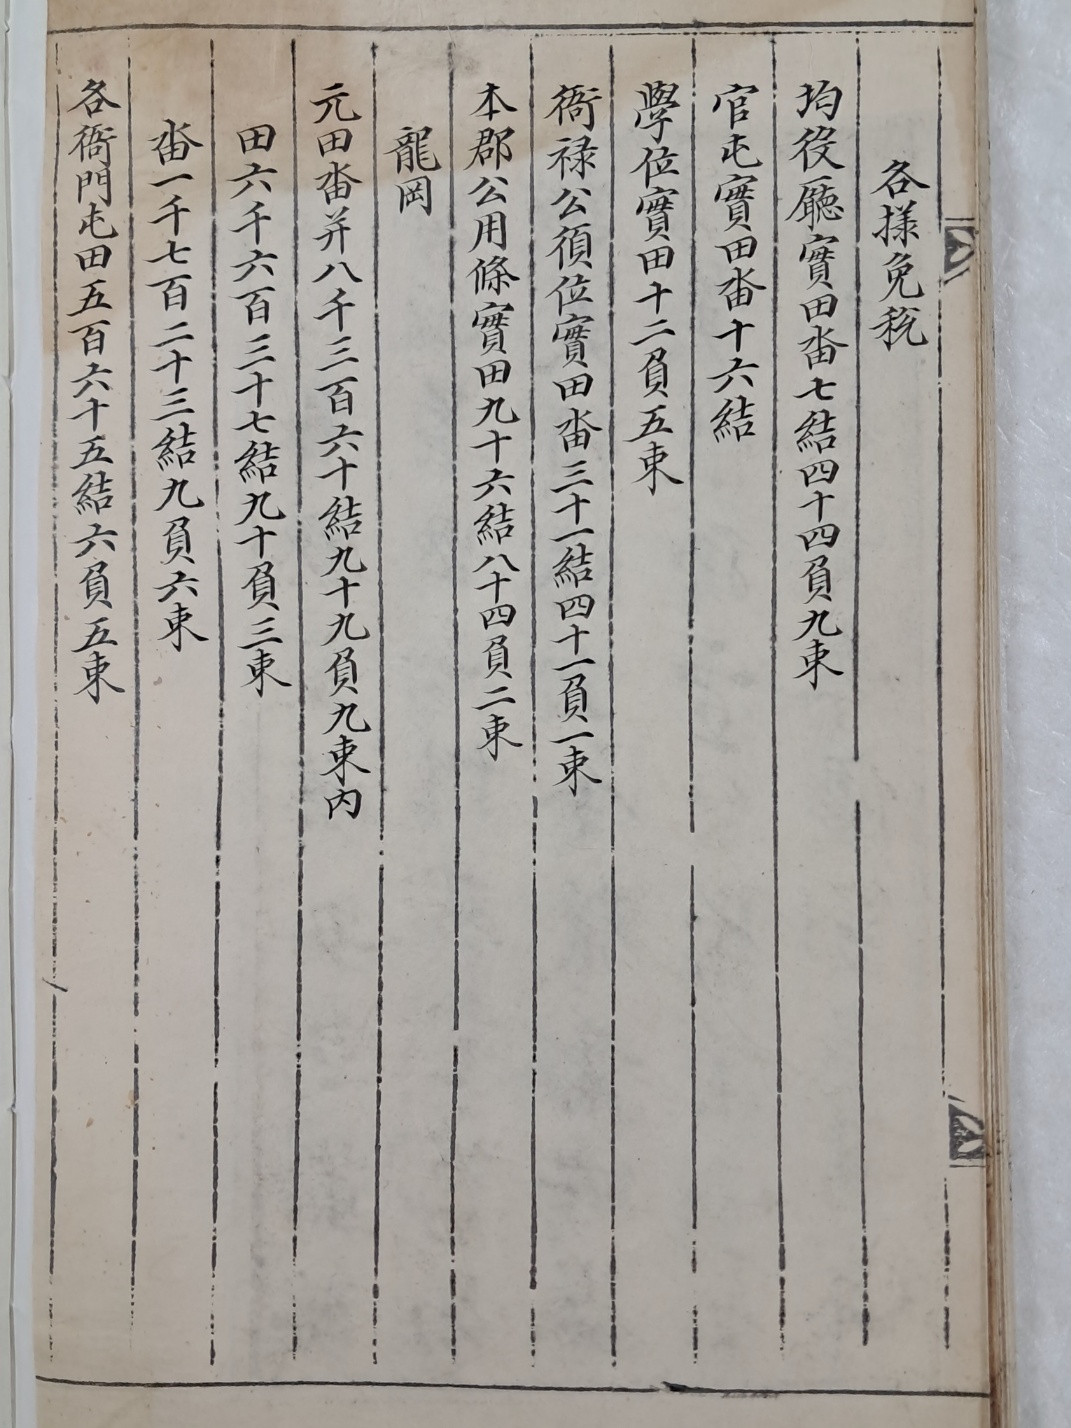 各様免稅
均役廳實田畓七結四十四負九束
官屯實田畓十六結
學位實田十二負五束
衙祿公須位實田畓三十一結四十一負一束
本郡公用條實田九十六結八十四負二束
龍岡
元田畓并八千三百六十結九十九負九束內
田六千六百三十七結九十負三束
畓一千七百二十三結九負六束
各衙門屯田五百六十五結六負五束